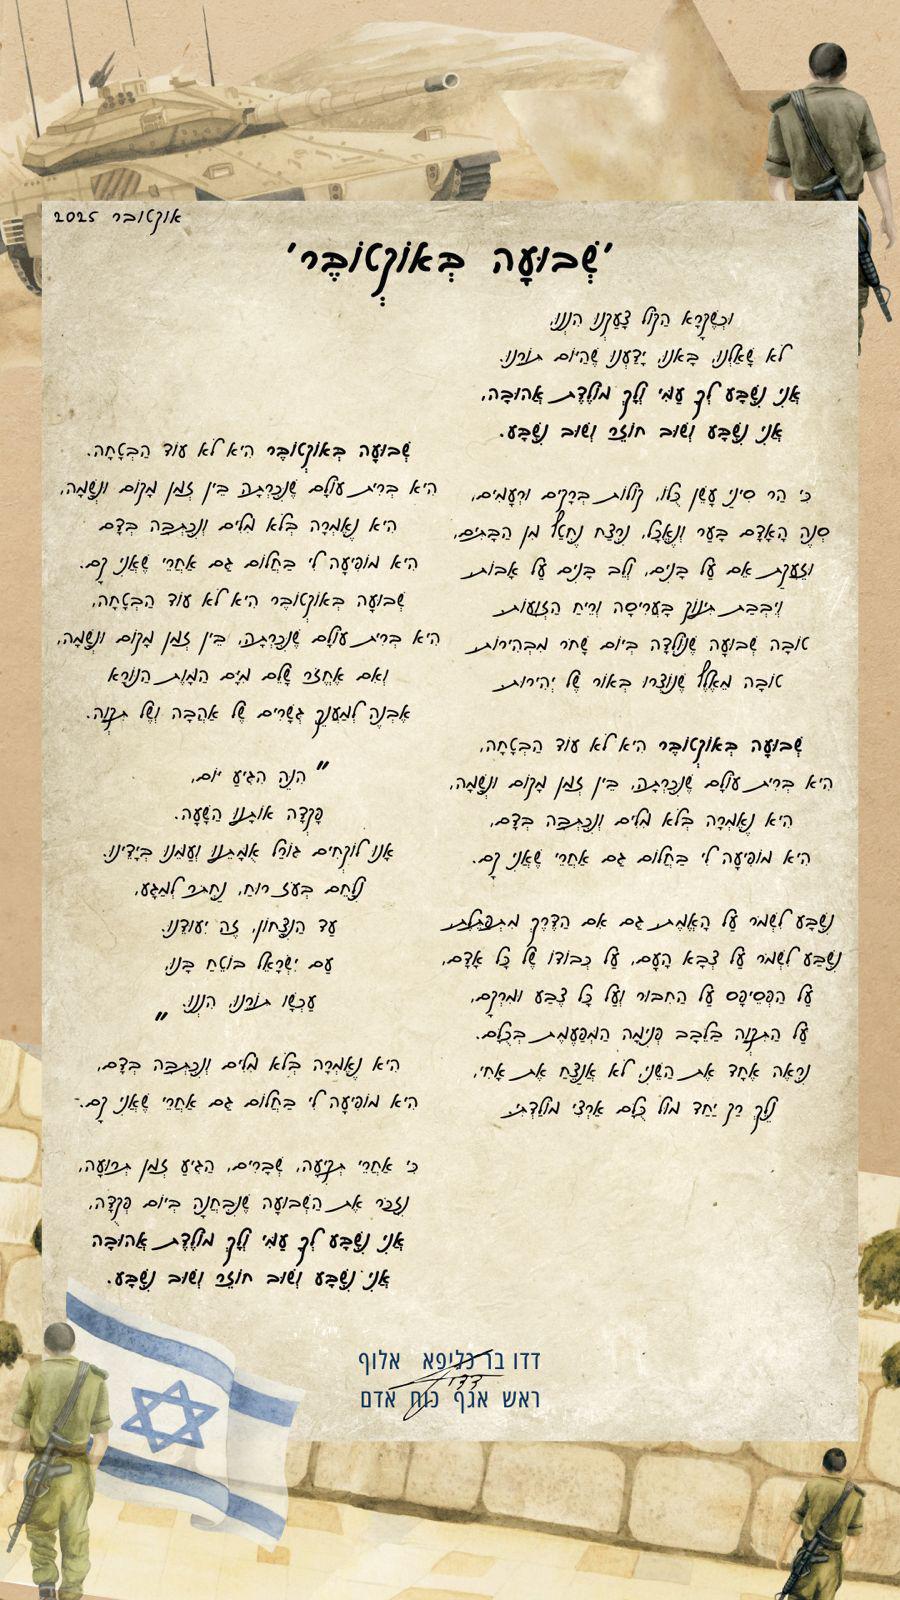 אוקטובר 2025
'שְׁבוּעָה בְּאוֹקְטוֹבֶּר'
וּכְשֶׁקָּרָא הַקּוֹל צָעַקְנוּ הִנְנוּ,
לֹא שָׁאַלְנוּ, בָּאנוּ, יָדַעְנוּ שֶׁהַיּוֹם תּוֹרֵנוּ.
אֲנִי נִשְׁבָּע לָךְ עַמִּי וְלָךְ מוֹלֶדֶת אֲהוּבָה,
אֲנִי נִשְׁבָּע וְשׁוּב חוֹזֵר וְשׁוּב נִשְׁבָּע.
כִּי הַר סִינַי עָשַׁן כֻּלּוֹ, קוֹלוֹת בְּרָקִים וּרְעָמִים,
סְנֵה הָאָדָם בָּעַר וְנֶאֱכַל, נִרְצַח נֶחְטַף מִן הַבָּתִּים,
וְזַעֲקַת אֵם עַל בָּנִים, וְלֵב בָּנִים עַל אָבוֹת
וְיִבְבַת תִּינוֹק בָּעֲרִיסָה וְרֵיחַ הַזְּוָעוֹת
טוֹבָה שְׁבוּעָה שֶׁנּוֹלְדָה בְּיוֹם שָׁחֹר מִבְּהִירוּת
טוֹבָה מֵאֶלֶף שֶׁנּוֹצְרוּ בְּאוֹר שֶׁל יְהִירוּת
שְׁבוּעָה בְּאוֹקְטוֹבֶּר הִיא לֹא עוֹד הַבְטָחָה,
הִיא בְּרִית עוֹלָם שֶׁנִּכְרְתָה, בֵּין זְמַן מָקוֹם וּנְשָׁמָה,
הִיא נֶאֶמְרָה בְּלֹא מִלִּים וְנִכְתְּבָה בְּדָם,
הִיא מוֹפִיעָה לִי בַּחֲלוֹם גַּם אַחֲרֵי שֶׁאֲנִי קָם.
נִשְׁבָּע לִשְׁמֹר עַל הָאֱמֶת גַּם אִם הַדֶּרֶךְ מִתְפַּתֶּלֶת
נִשְׁבַּע לִשְׁמֹר עַל צְבָא הָעָם, עַל כְּבוֹדוֹ שֶׁל כָּל אָדָם,
עַל הַפְּסֵיפָס עַל הַחִבּוּר וְעַל כָּל צֶבַע וּמִרְקָם,
עַל הַתִּקְוָה בַּלֵּבָב פְּנִימָה הַמְפַעֶמֶת בְּכֻלָּם.
נִרְאֶה אֶחָד אֶת הַשֵּׁנִי, לֹא אֲנַצֵּחַ אֶת אָחִי,
נֵלֵךְ רַק יַחַד מוּל כֻּלָּם אַרְצִי מוֹלַדְתִּי
שְׁבוּעָה בְּאוֹקְטוֹבֶּר הִיא לֹא עוֹד הַבְטָחָה.
הִיא בְּרִית עוֹלָם שֶׁנִּכְרְתָה בֵּין זְמַן מָקוֹם וּנְשָׁמָה,
הִיא נֶאֶמְרָה בְּלֹא מִלִּים וְנִכְתְּבָה בְּדָם
הִיא מוֹפִיעָה לִי בַּחֲלוֹם גַּם אַחֲרֵי שֶׁאֲנִי קָם.
שְׁבוּעָה בְּאוֹקְטוֹבֶר הִיא לֹא עוֹד הַבְטָחָה,
הִיא בְּרִית עוֹלָם שֶׁנִּכְרְתָה, בֵּין זְמַן מָקוֹם וּנְשָׁמָה,
וְאִם אֶחֱזֹר שָׁלֵם מִיָּם הַמָּוֶת הַנּוֹרָא
אֶבְנֶה לְמַעֲנֵךְ גְּשָׁרִים שֶׁל אַהֲבָה וְשֶׁל תִּקְוָה.
"הִנֵּה הִגִּיעַ יוֹם,
פָּקְדָה אוֹתָנוּ הַשָּׁעָה.
אָנוּ לוֹקְחִים גּוֹרַל אֻמָּתֵנוּ וְעַמֵּנוּ בְּיָדֵינוּ.
נִלָּחֵם בְּעֹז רוּחַ, נַחְתֹּר לְמַגָּע,
עַד הַנִּצָּחוֹן, זֶה יִעוּדֵנוּ.
עַם יִשְׂרָאֵל בּוֹטֵחַ בָּנוּ,
עַכְשָׁו תּוֹרֵנוּ, הִנְנוּ."
הִיא נֶאֶמְרָה בְּלֹא מִלִּים וְנִכְתְּבָה בְּדָם,
הִיא מוֹפִיעָה לִי בַּחֲלוֹם גַּם אַחֲרֵי שֶׁאֲנִי קָם.
כִּי אַחֲרֵי תְּקִיעָה, שְׁבָרִים, הִגִּיעַ זְמַן תְּרוּעָה,
נִזְכֹּר אֶת הַשְּׁבוּעָה שֶׁנִּבְחֲנָה בְּיוֹם פְּקֻדָּה,
אֲנִי נִשְׁבָּע לָךְ עַמִּי וְלָךְ מוֹלֶדֶת אֲהוּבָה
אֲנִי נִשְׁבָּע וְשׁוּב חוֹזֵר וְשׁוּב נִשְׁבָּע.
דדו בר כליפא אלוף
דדו
ראש אגף כוח אדם